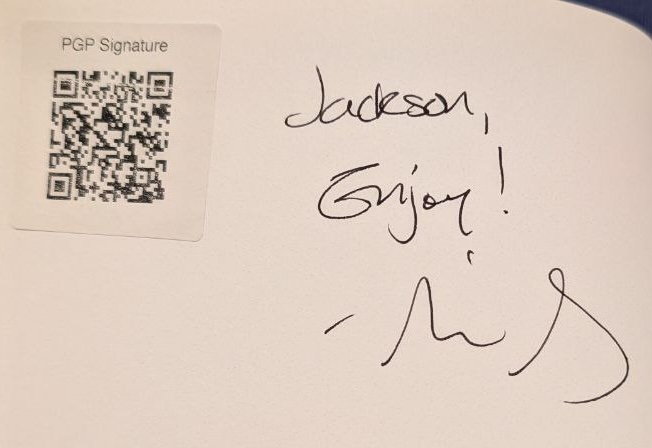 PGP Signature
Jackson,
Enjoy!